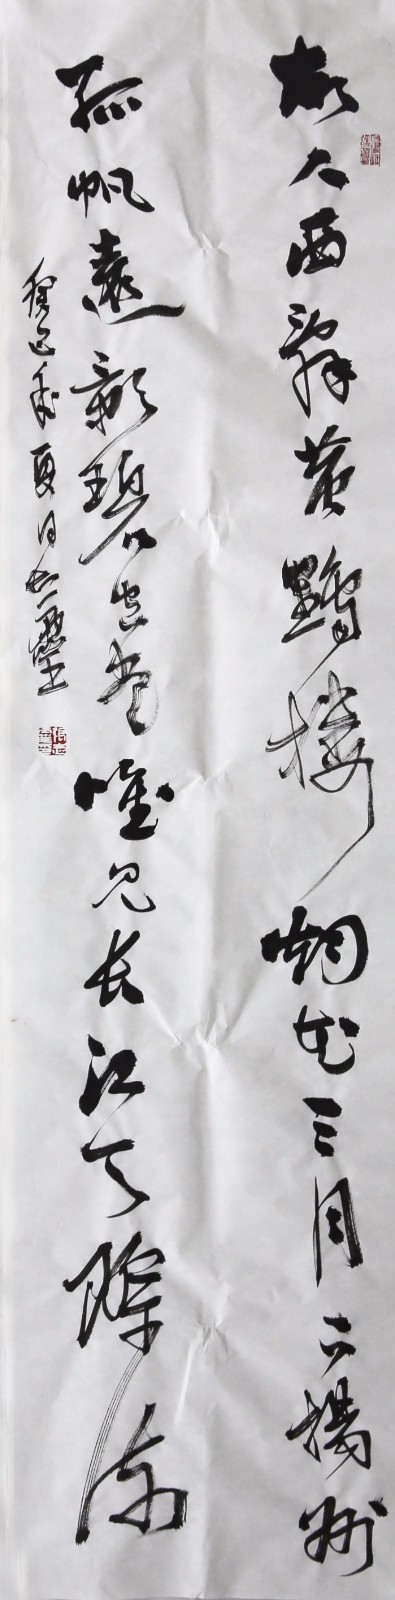 故人西辞黄鹤楼烟花三月下扬州
孤帆远影碧空尽唯见长江天际流
癸巳年夏月